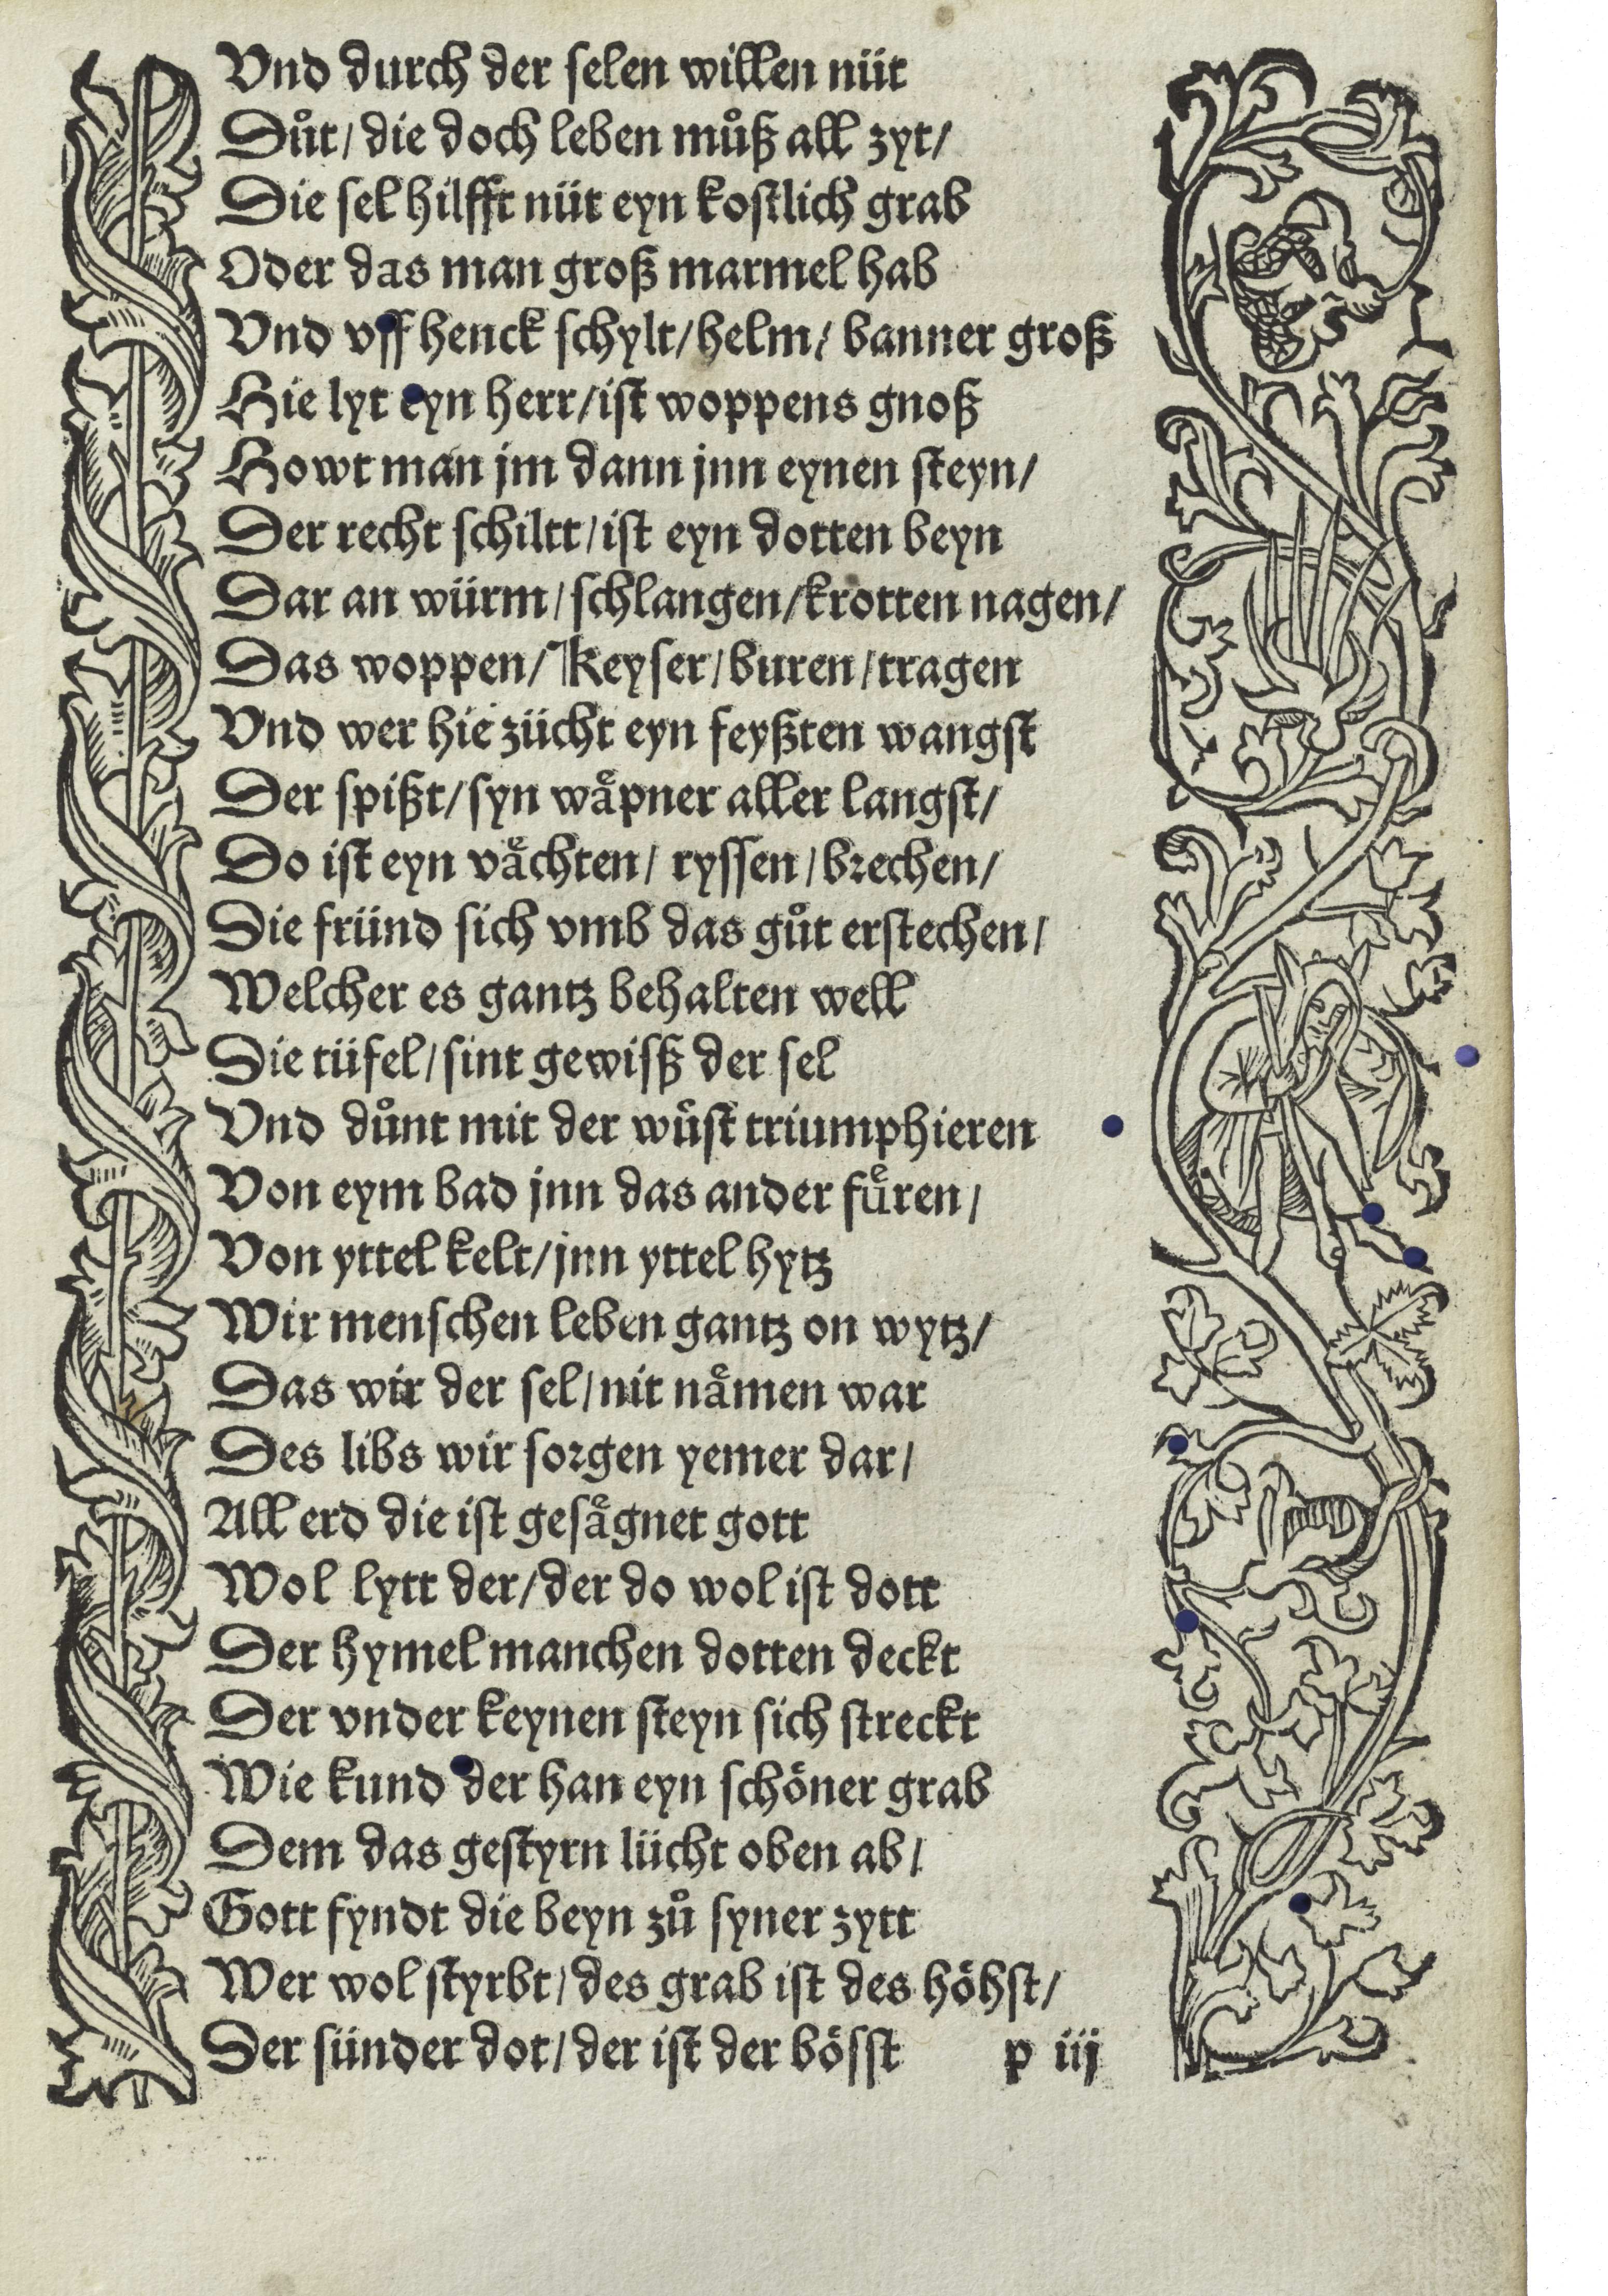 Vnd durch der selen willen nüt
Důt/ die doch leben můß all zyt/
Die sel hilfft nüt eyn kostlich grab
Oder das man groß marmel hab
Vnd vff henck schylt/helm/ banner groß
Hie lyt eyn herr/ist woppens gnoß
Howt man jm dann jnn eynen steyn/
Der recht schiltt/ist eyn dotten beyn
Dar an würm/schlangen/krotten nagen/
Das woppen/ Keyser/buren/tragen
Vnd wer hie zücht eyn feyßten wangst
Der spißt/syn wåͤpner aller langst/
Do ist eyn vaͤchten/ ryssen/brechen/
Die fründ sich vmb das gůt erstechen/
Welcher es gantz behalten well
Die tüfel/sint gewisß der sel
Vnd důnt mit der wuͤst triumphieren
Von eym bad jnn das ander fuͤren/
Von yttel kelt/jnn yttel hytz
Wir menschen leben gantz on wytz/
Das wir der sel/nit naͤmen war
Des libs wir sorgen yemer dar/
All erd die ist gesaͤgnet gott
Wol lytt der/der do wol ist dott
Der hymel manchen dotten deckt
Der vnder keynen steyn sich streckt
Wie kund der han eyn schöner grab
Dem das gestyrn lücht oben ab/
Gott fyndt die beyn zů syner zytt
Wer wol styrbt/des grab ist des höhst/
Der sünder dot/der ist der bösst p iij